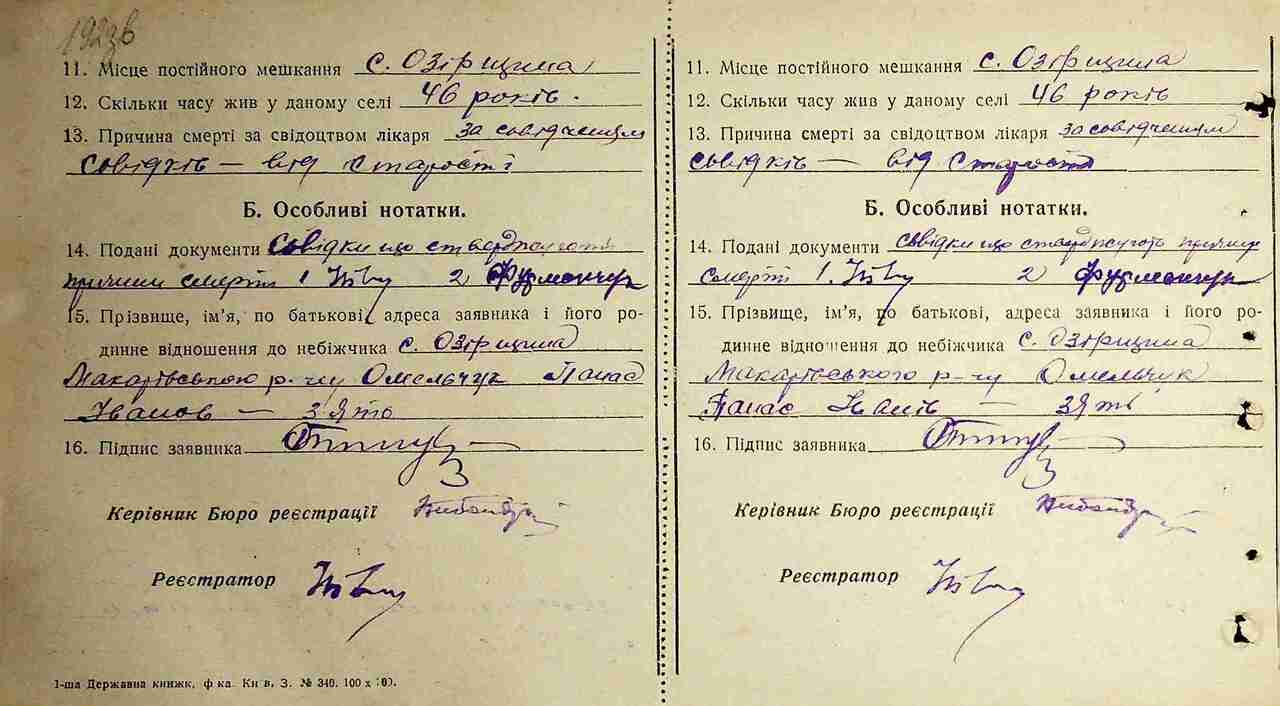 192зв
11. Місце постійного мешкання с. Озірщина
12. Скільки часу жив у даному селі 46 років.
13. Причина смерті за свідоцтвом лікаря за совідченцям
совідків — від старості
Б. Особливі нотатки.
14. Подані документи совідки що стверджують
причини смерті 1 2 Фурманчук
15. Прізвище, ім'я, по батькові, адреса заявника і його ро-
динне відношення до небіжчика с. Озірщина
Макарівського р-ну Омельчук Панас
Іванов — зято
16. Підпис заявника
Керівник Бюро реєстрації
Реєстратор
1-ша Державна книжк. ф-ка. Київ, З. № 340. 100 х 100.
11. Місце постійного мешкання с. Озірщина
12. Скільки часу жив у даному селі 46 років
13. Причина смерті за свідоцтвом лікаря за совідченцям
совідків — від старости
Б. Особливі нотатки.
14. Подані документи совідки що стверджують причину
смерті 1. 2 Фурманчук
15. Прізвище, ім'я, по батькові, адреса заявника і його ро-
динне відношення до небіжчика с. Озірщина
Макарівського р-ну Омельчук
Панас Іванів — зять
16. Підпис заявника
Керівник Бюро реєстрації
Реєстратор